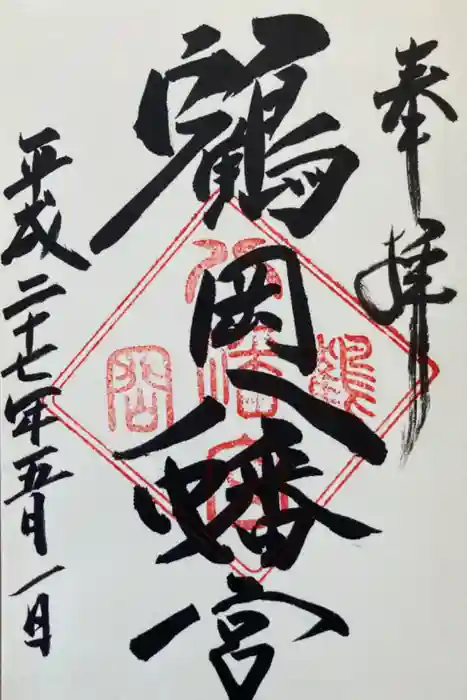 奉拝
鶴岡八幡宮
平成二十七年五月一日